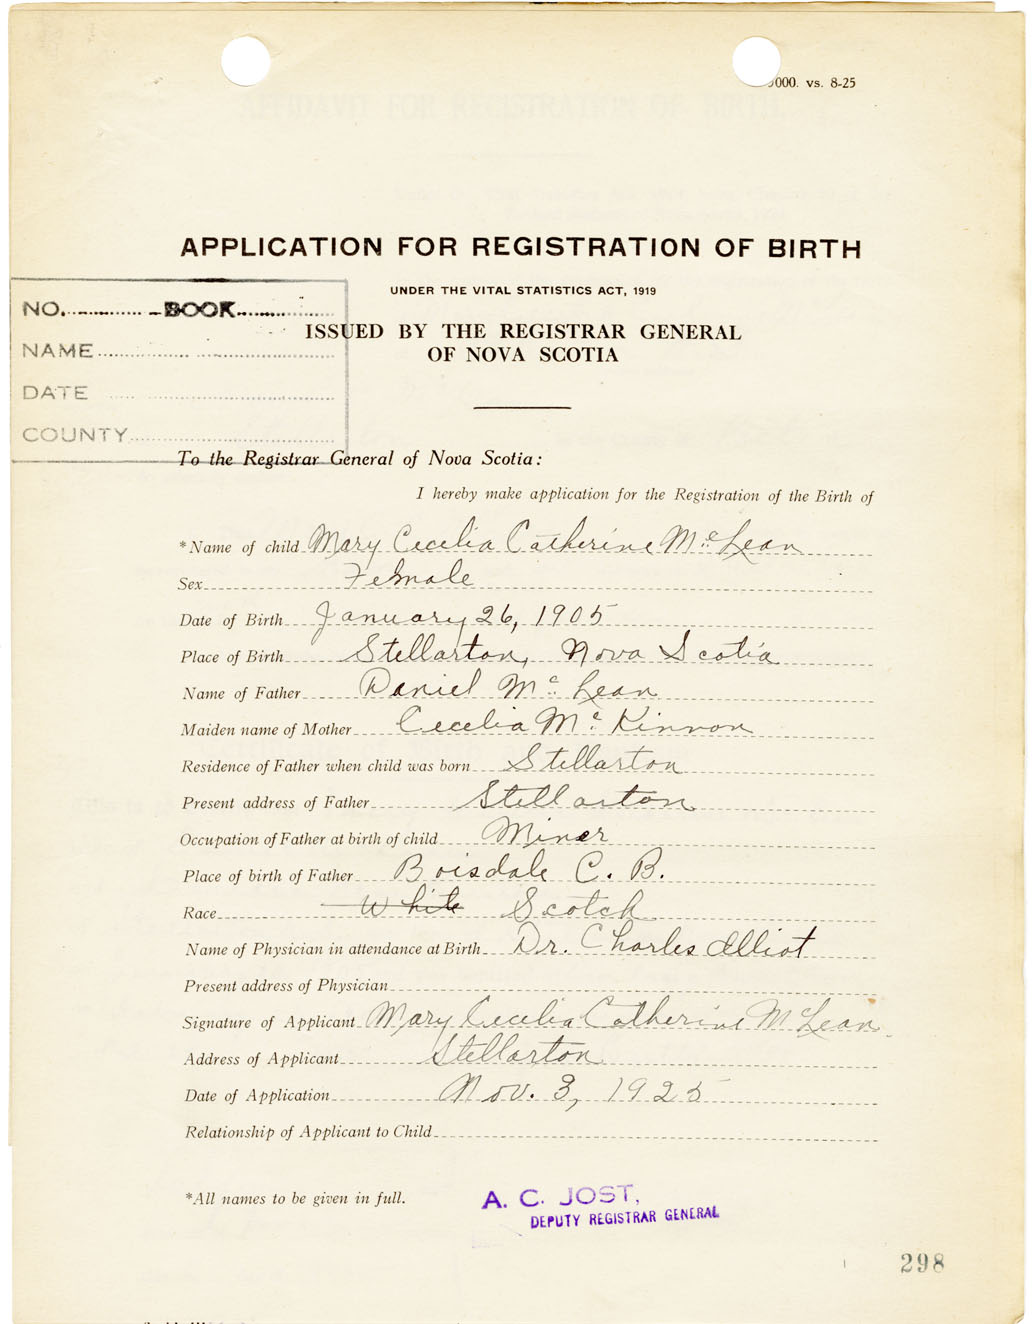 000. vs. 8-25
APPLICATION FOR REGISTRATION OF BIRTH
UNDER THE VITAL STATISTICS ACT, 1919
ISSUED BY THE REGISTRAR GENERAL
OF NOVA SCOTIA
NO. BOOK
NAME
DATE
COUNTY
To the Registrar General of Nova Scotia:
I hereby make application for the Registration of the Birth of
*Name of child Mary Cecelia Catherine McLean
Sex Female
Date of Birth January 26, 1905
Place of Birth Stellarton, Nova Scotia
Name of Father Daniel McLean
Maiden name of Mother Cecelia McKinnon
Residence of Father when child was born Stellarton
Present address of Father Stellarton
Occupation of Father at birth of child Miner
Place of birth of Father Boisdale C. B.
Race White Scotch
Name of Physician in attendance at Birth Dr. Charles Elliot
Present address of Physician
Signature of Applicant Mary Cecelia Catherine McLean
Address of Applicant Stellarton
Date of Application Nov. 3, 1925
Relationship of Applicant to Child
*All names to be given in full.
A. C. JOST,
DEPUTY REGISTRAR GENERAL
298